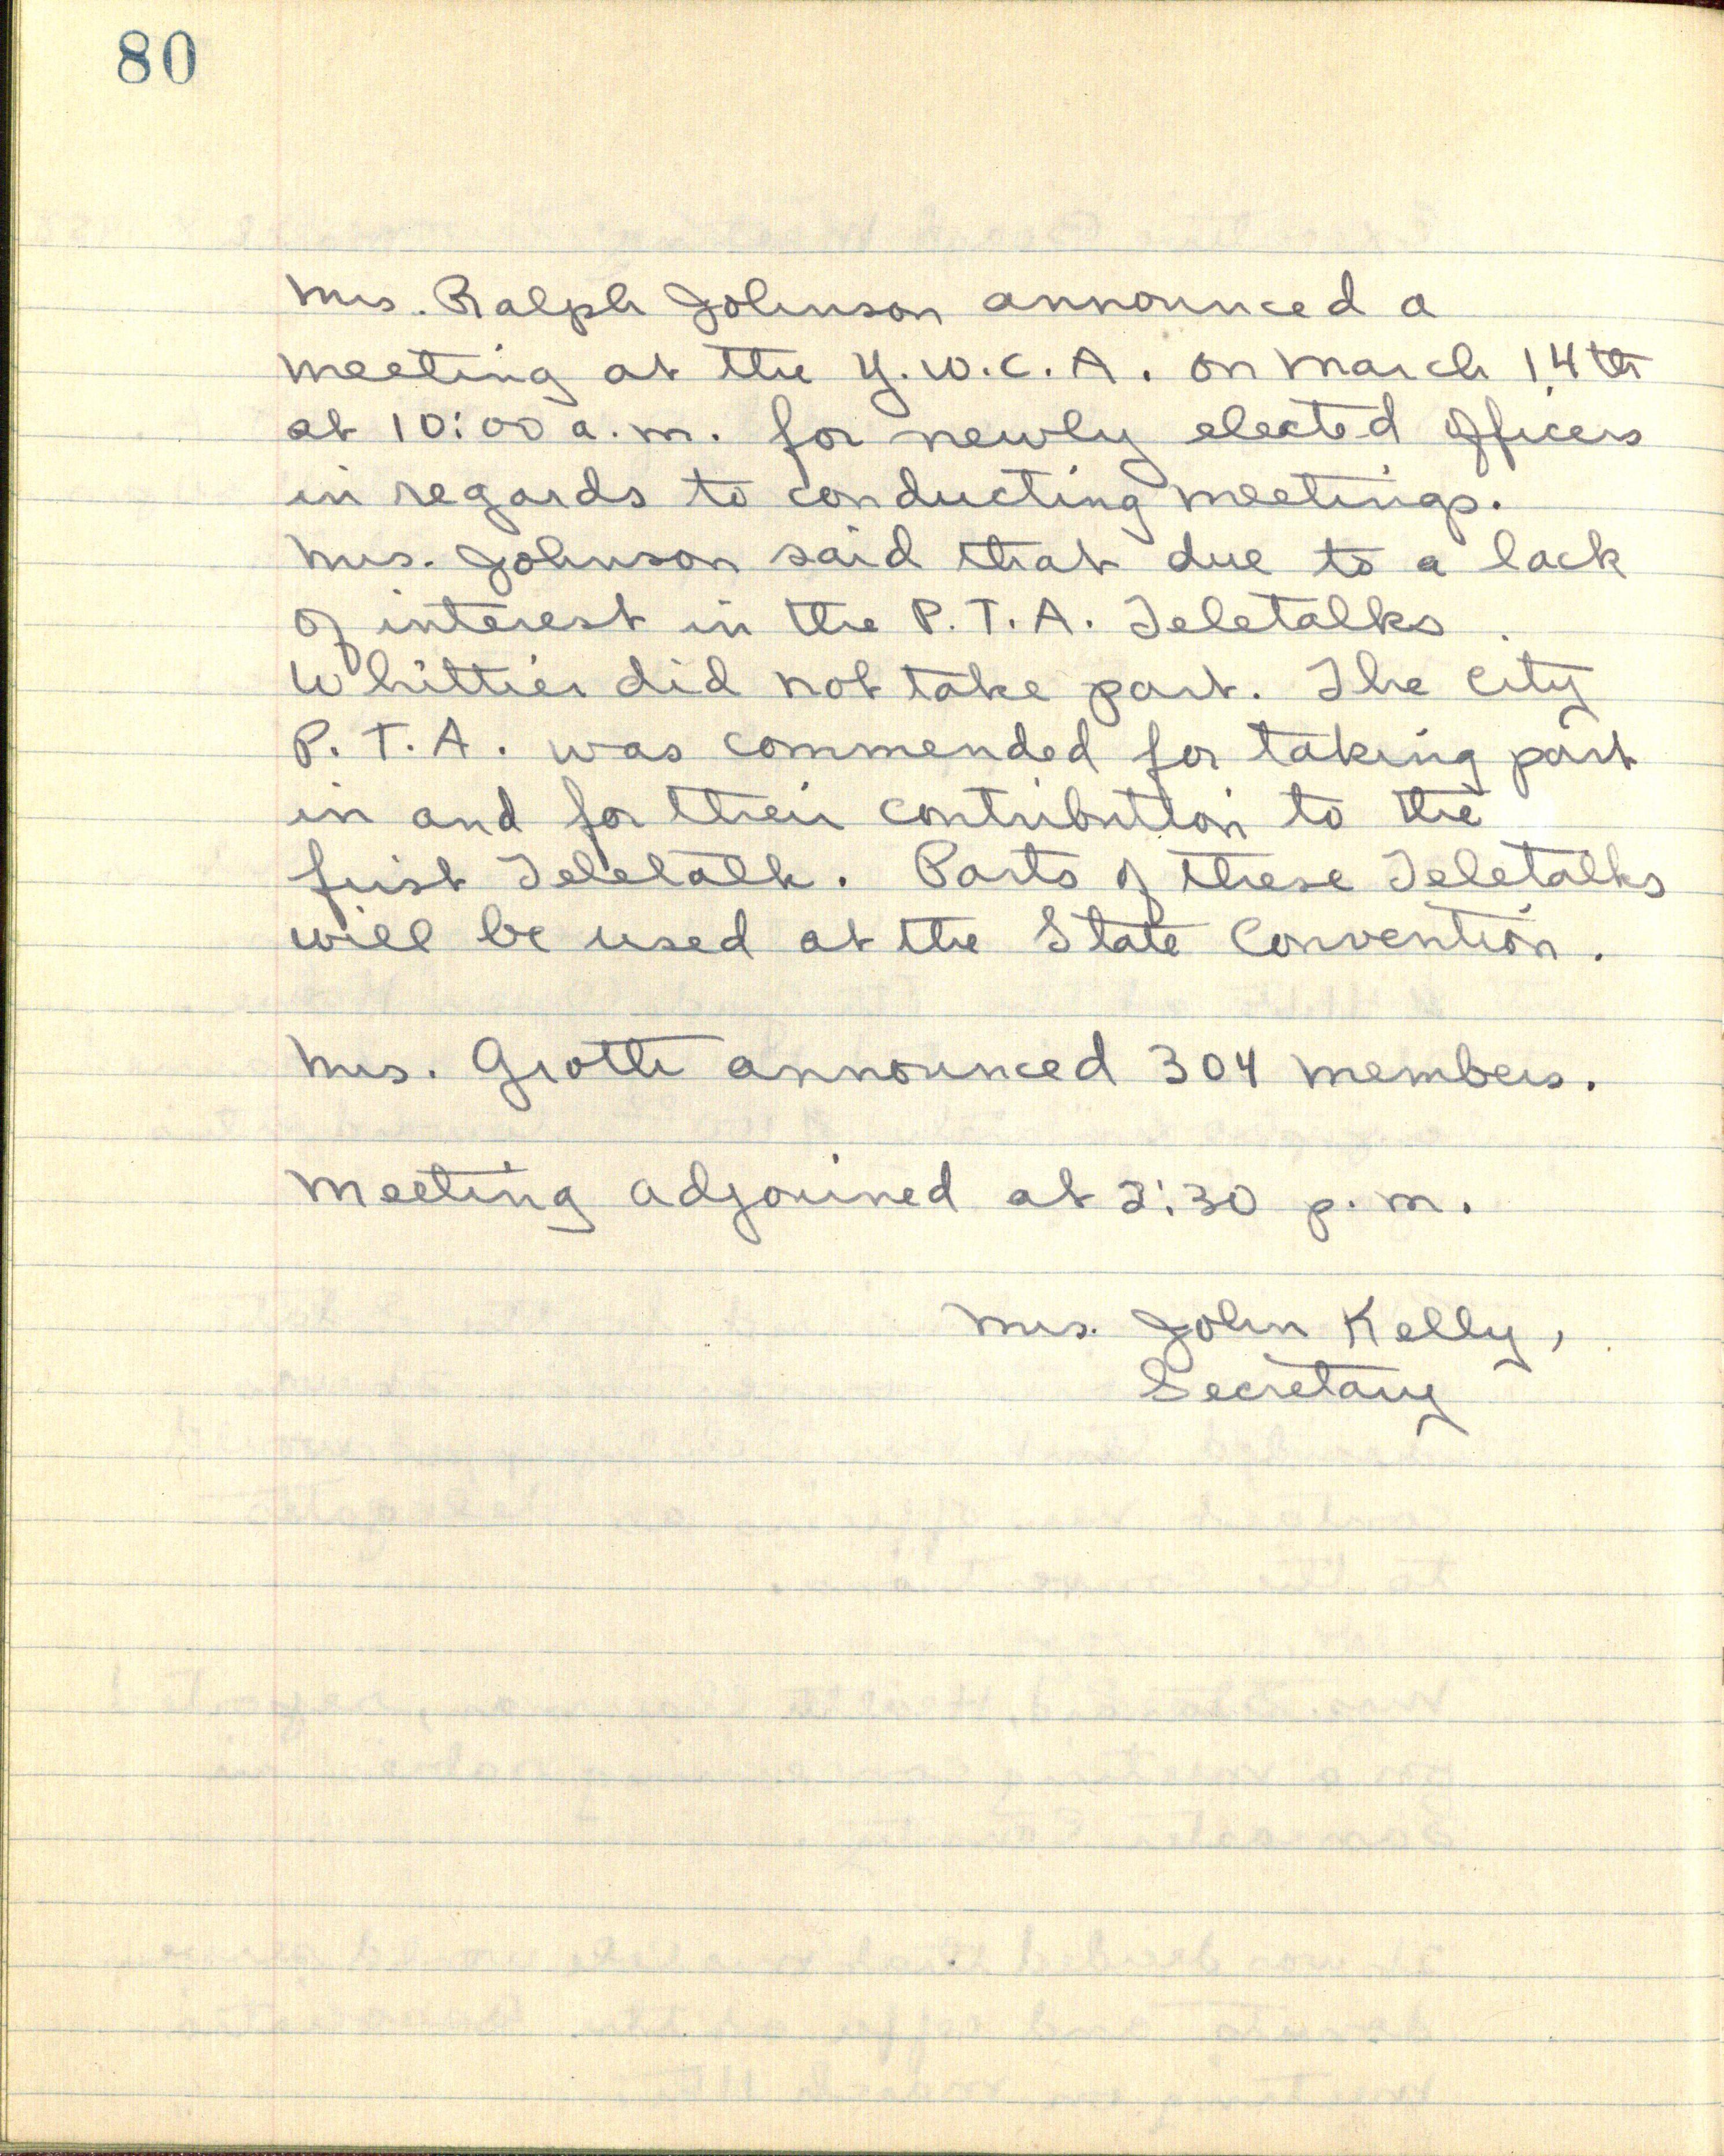 80
Mrs. Ralph Johnson announced a
meeting at the Y.W.C.A. on March 14th
at 10:00 a.m. for newly elected officers
in regards to conducting meetings.
Mrs. Johnson said that due to a lack
of interest in the P.T.A. Teletalks
Whittier did not take part. The city
P.T.A. was commended for taking part
in and for their contribution to the
first Teletalk. Parts of these Teletalks
will be used at the State Convention.
Mrs. Grotte announced 304 members.
Meeting adjourned at 2:30 p.m.
Mrs. John Kelly,
Secretary